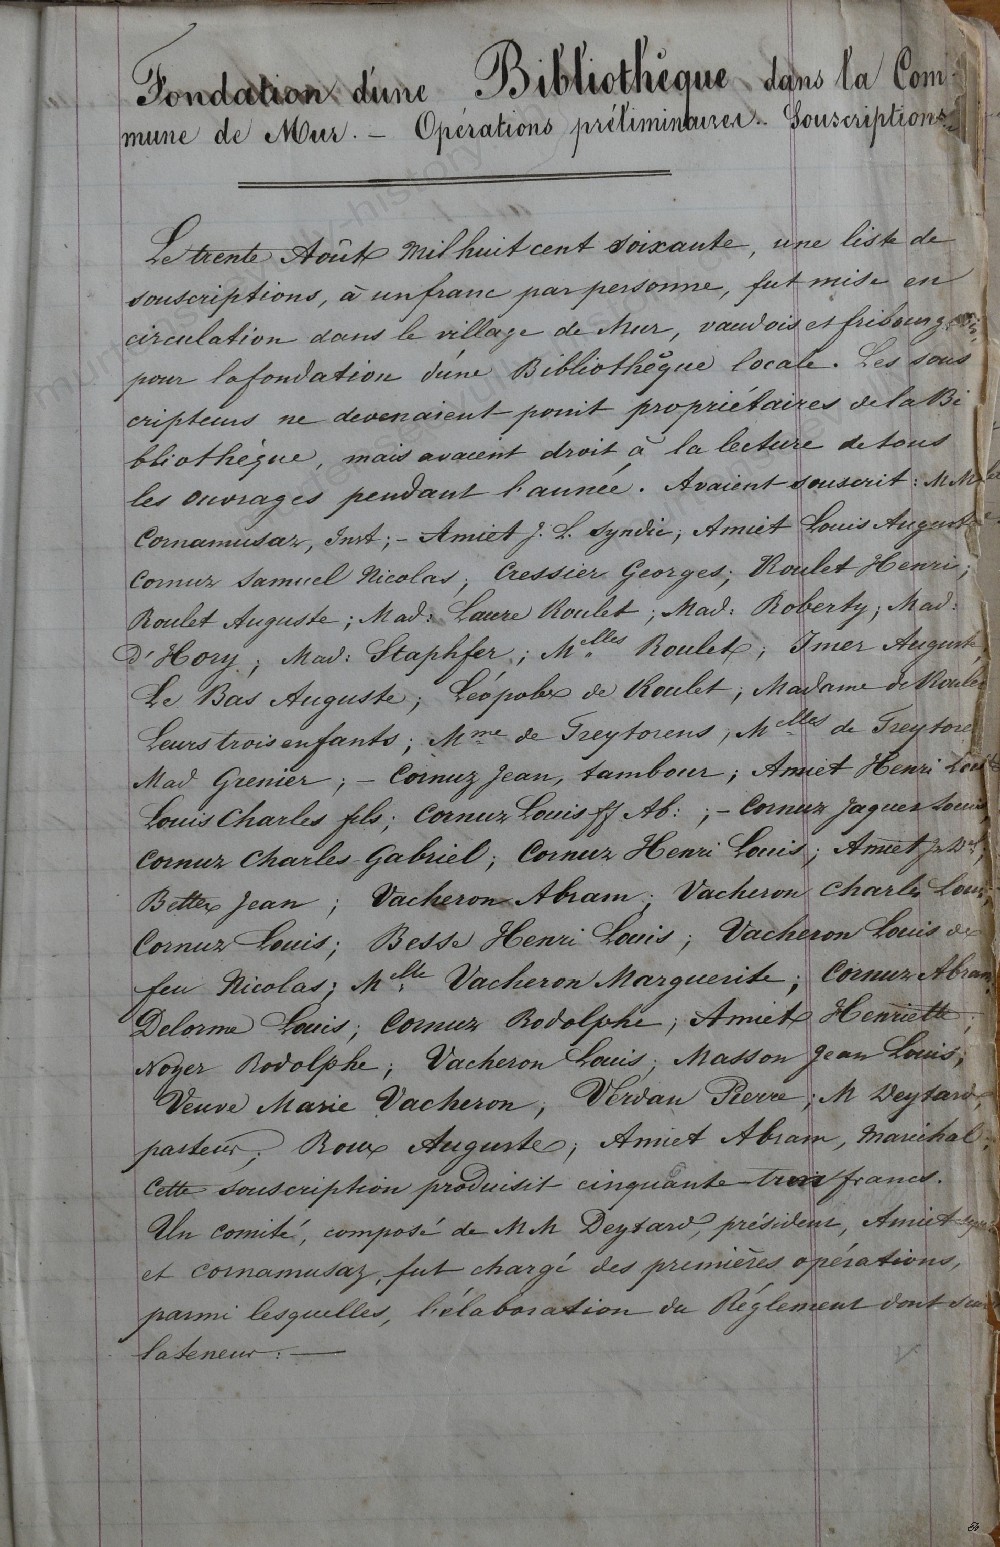 Fondation d'une Bibliothèque dans la Com-
mune de Mur. — Opérations préliminaires. Souscriptions
Le trente Août Mil huit cent soixante, une liste de
souscriptions, à un franc par personne, fut mise en
circulation dans le village de Mur, vaudois et fribourgeois
pour la fondation d'une Bibliothèque locale. Les sous
cripteurs ne devenaient point propriétaires de la Bi
bliothèque, mais avaient droit à la lecture de tous
les ouvrages pendant l'année. Avaient souscrit: MM
Cornamusaz, Inst; - Amiet J. L. Syndic; Amiet Louis Auguste
Cornuz Samuel Nicolas; Cressier Georges; Roulet Henri;
Roulet Auguste; Mad: Laure Roulet; Mad: Roberty; Mad:
D'Hory; Mad: Staphfer; Melles Roulet; Imer Auguste
Le Bas Auguste; Léopold de Roulet; Madame de Roulet
Leurs trois enfants; Mme de Treytorens; Melles de Treytorens
Mad Grenier; - Cornuz Jean, tambour; Amiet Henri Louis
Louis Charles fils; Cornuz Louis ff Ab: ; - Cornuz Jaques Louis
Cornuz Charles Gabriel; Cornuz Henri Louis; Amiet Jn Dl;
Bettex Jean; Vacheron Abram; Vacheron Charles Louis;
Cornuz Louis; Besse Henri Louis; Vacheron Louis de
feu Nicolas; Melle Vacheron Marguerite; Cornuz Abram
Delorme Louis; Cornuz Rodolphe; Amiet Henriette;
Noyer Rodolphe; Vacheron Louis; Masson Jean Louis;
Veuve Marie Vacheron; Verdan Pierre; M Deytard,
pasteur; Roux Auguste; Amiet Abram, maréchal.
Cette souscription produisit cinquante-trois francs.
Un comité, composé de MM Deytard, président, Amiet
et Cornamusaz, fut chargé des premières opérations,
parmi lesquelles, l'élaboration du Réglement dont suit
la teneur: —